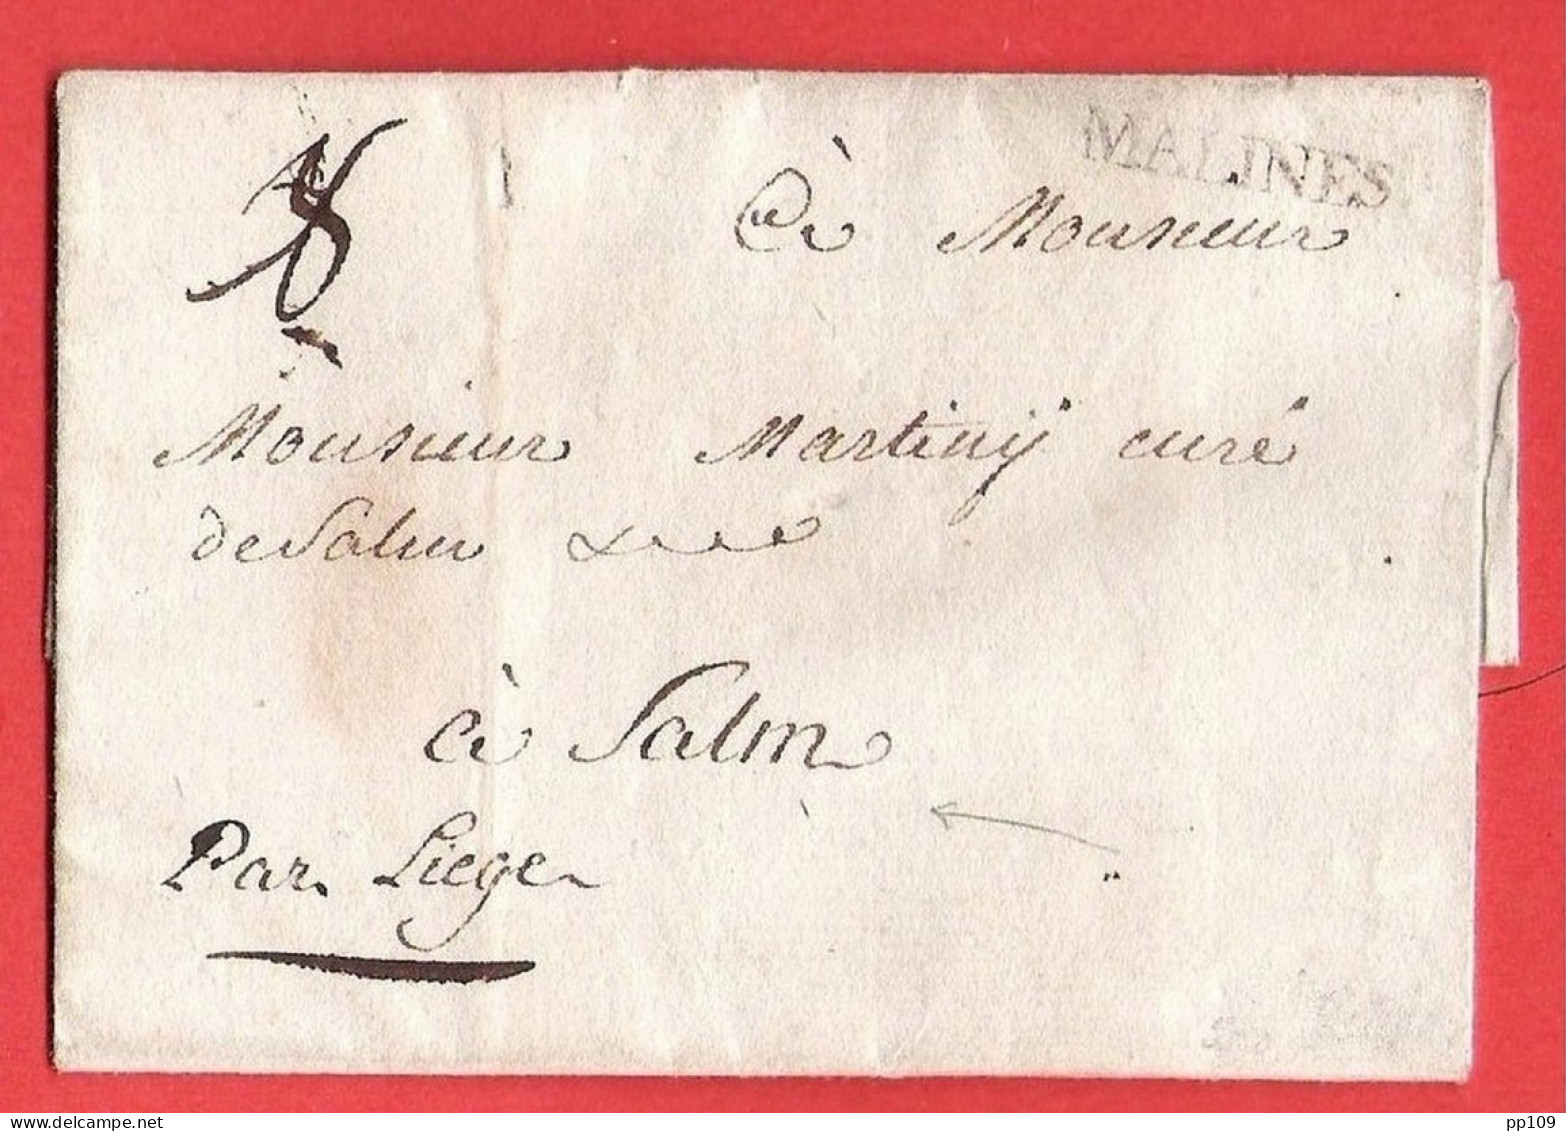 MALINES
8
à Monsieur
Monsieur Martinÿ curé
de Salm
à Salm
Par Liege
www.delcampe.net
pp109